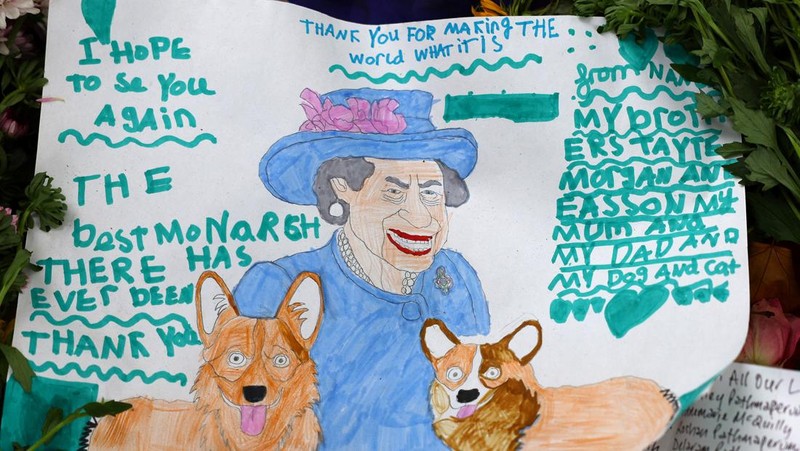 THANK YOU FOR MAKING THE
WORLD WHAT IT IS
I HOPE
To Se You
AgAin
THE
best MoNARGH
THERE HAS
EVER BEEN
THANK You
from
MY brotH
ERS TAYTE
MORGAN AND
EASSON MY
MUM AND
MY DAD AND
MY Dog And CAt
All Our L
McQuilly
Pathmaperuma